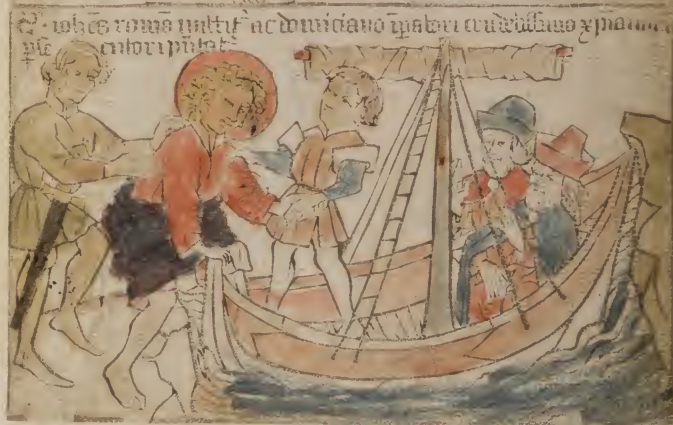 S. ioh̅es roma̅ mittit᷑ ac domiciano i̅patori crudelissimo xp̅iano
p̅secutori p̅ntat᷑